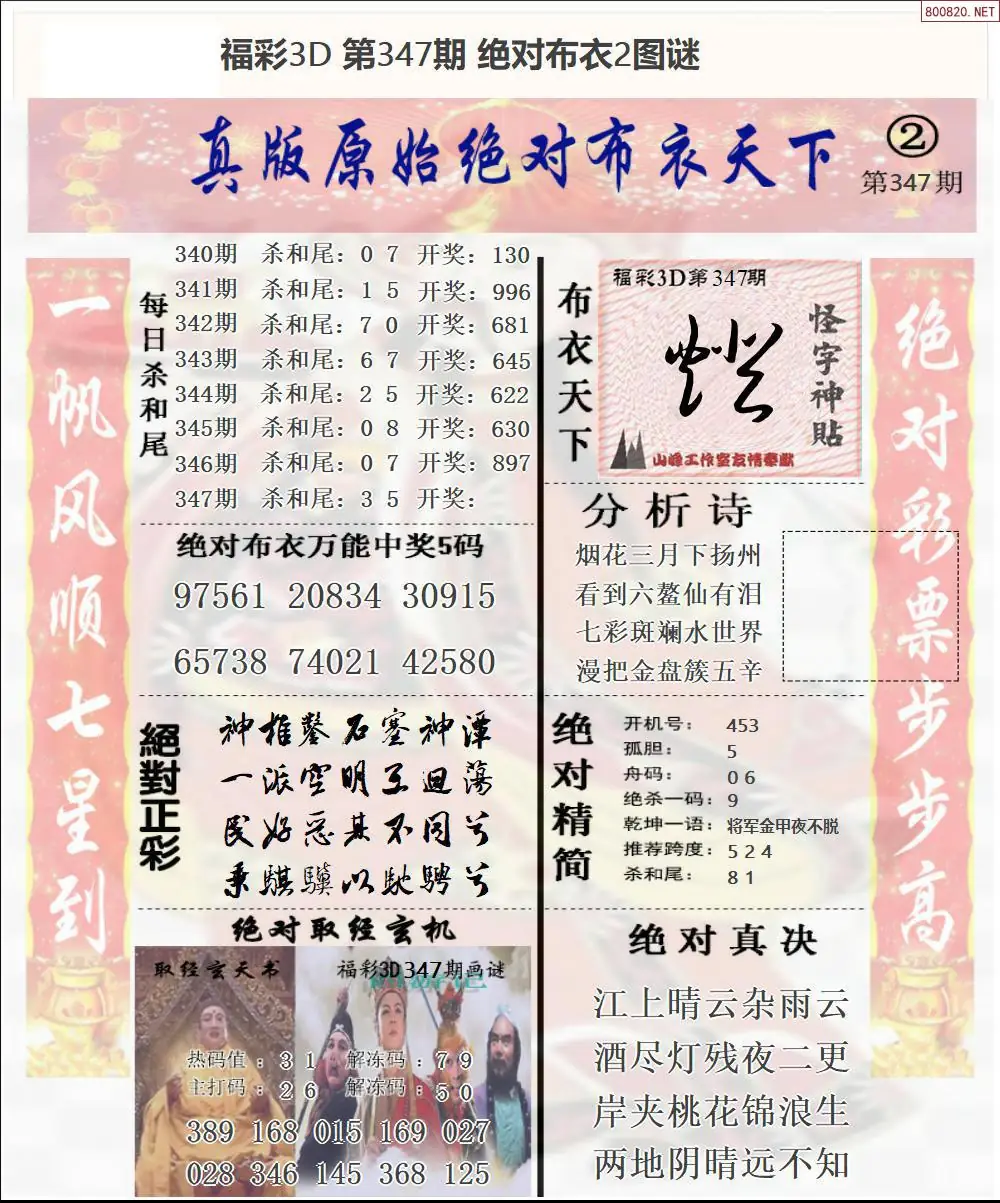 800820.NET
福彩3D 第347期 绝对布衣2图谜
真版原始绝对布衣天下
②
第347期
一帆风顺七星到
每日杀和尾
340期 杀和尾：0 7 开奖：130
341期 杀和尾：1 5 开奖：996
342期 杀和尾：7 0 开奖：681
343期 杀和尾：6 7 开奖：645
344期 杀和尾：2 5 开奖：622
345期 杀和尾：0 8 开奖：630
346期 杀和尾：0 7 开奖：897
347期 杀和尾：3 5 开奖：
绝对布衣万能中奖5码
97561 20834 30915
65738 74021 42580
絕對正彩
神椎鑿石塞神潭
一派空明互迴荡
民好恶其不同兮
乘騏驥以馳騁兮
绝对取经玄机
取经玄天书
福彩3D347期画谜
热码值：3 1 解冻码：7 9
主打码：2 6 解冻码：5 0
389 168 015 169 027
028 346 145 368 125
布衣天下
福彩3D第347期
怪字神贴
山峰工作室友情奉献
分析诗
烟花三月下扬州
看到六鳌仙有泪
七彩斑斓水世界
漫把金盘簇五辛
绝对精简
开机号：453
孤胆：5
舟码：0 6
绝杀一码：9
乾坤一语：将军金甲夜不脱
推荐跨度：5 2 4
杀和尾：8 1
绝对真决
江上晴云杂雨云
酒尽灯残夜二更
岸夹桃花锦浪生
两地阴晴远不知
绝对彩票步步高